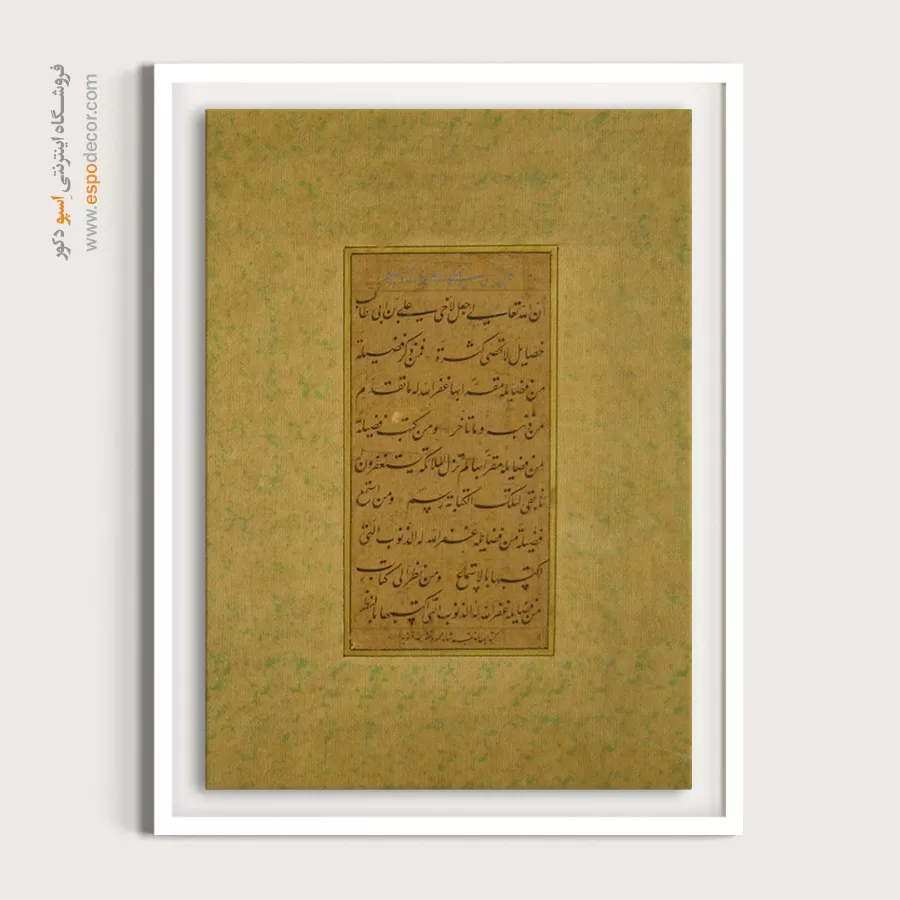 فروشگاه اینترنتی اِسپو دکور
www.espodecor.com
ان الله تعالی جعل لاخی علی بن ابی طالب
خصایل لا تحصی کثرة فمن ذکر فضیلة
من فضایله مقرا بها غفر الله له ما تقدم
من ذنبه و ما تاخر و من کتب فضیلة
من فضایله مقرا بها لم تزل الملائکة یستغفرون له
ما بقی لتلک الکتابة رسم و من استمع
فضیلة من فضایله غفر الله له الذنوب التی
اکتسبها بالاستماع و من نظر الی کتاب
من فضایله غفر الله له الذنوب التی اکتسبها بالنظر